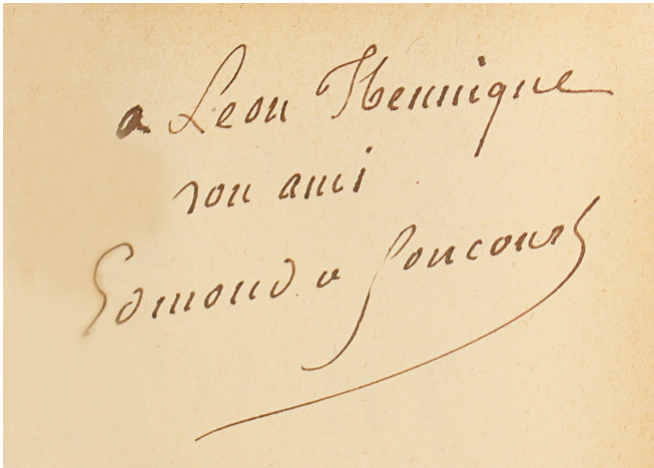 a Leon Hennique
son ami
Edmond de Goncourt